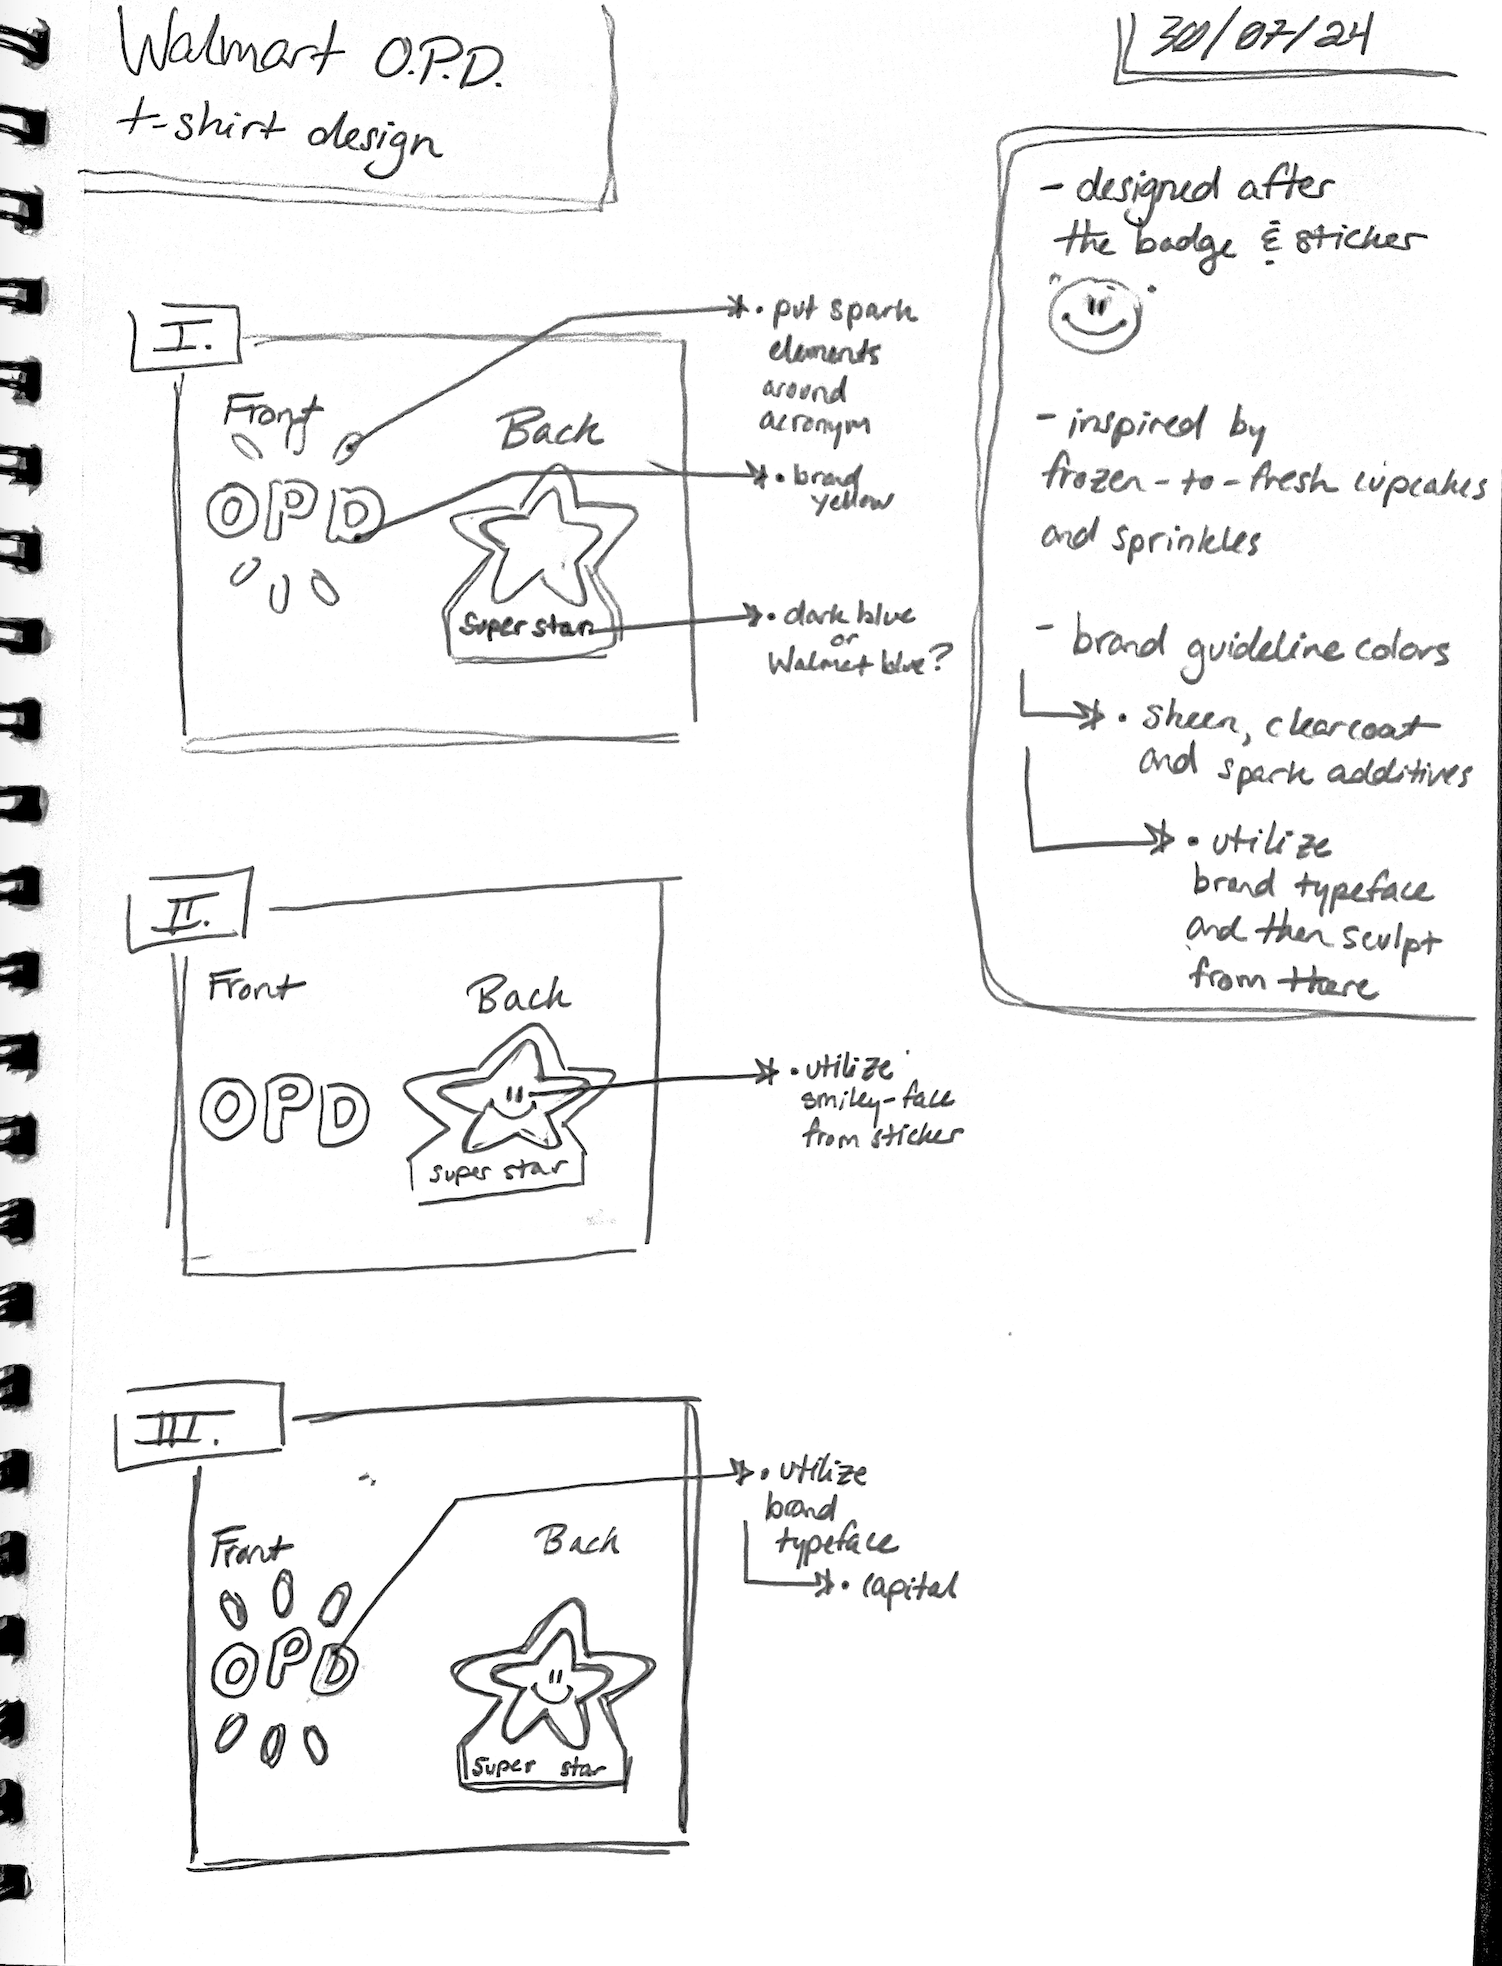 Walmart O.P.D.
t-shirt design
30/07/24
- designed after
the badge & sticker
- inspired by
frozen-to-fresh cupcakes
and sprinkles
- brand guideline colors
• sheen, clearcoat
and spark additives
• utilize
brand typeface
and then sculpt
from there
I.
Front
Back
OPD
Super star
• put spark
elements
around
acronym
• brand
yellow
• dark blue
or
Walmat blue?
II.
Front
Back
OPD
Super star
• utilize
smiley-face
from sticker
III.
Front
Back
OPD
Super star
• utilize
brand
typeface
• capital